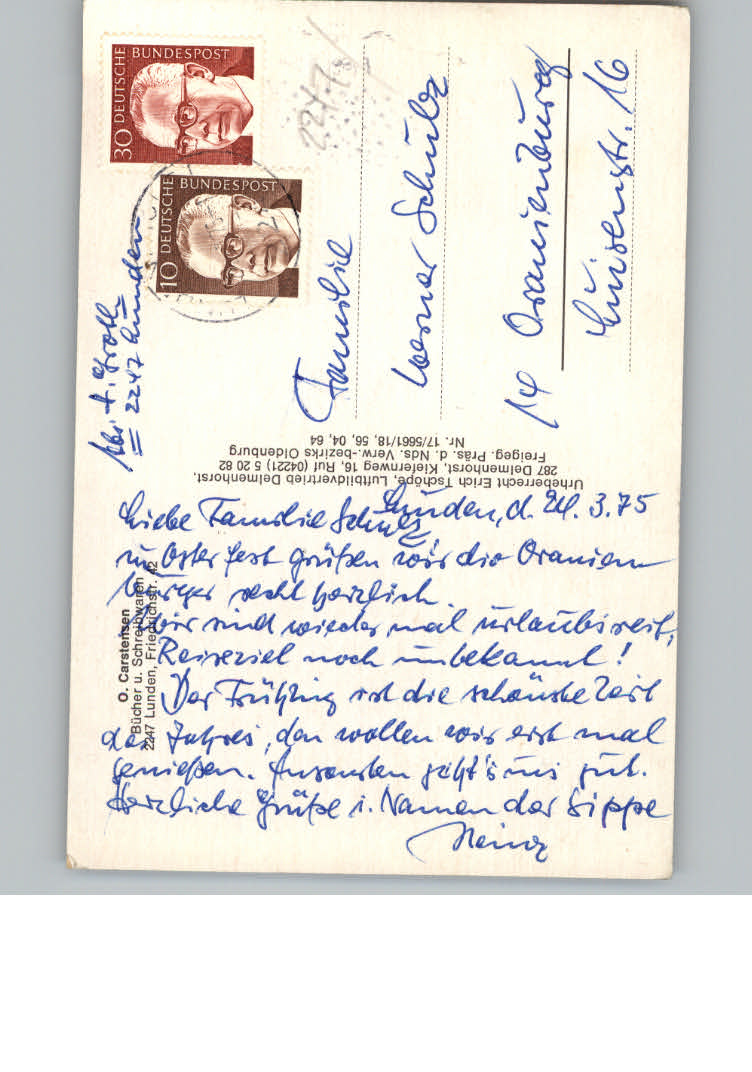 DEUTSCHE BUNDESPOST
30
DEUTSCHE BUNDESPOST
10
2247
2247 Lunden
Familie
Werner Schulz
14 Oranienburg
Luisenstr. 16
Urheberrecht Erich Tschöpe, Luftbildvertrieb Delmenhorst,
287 Delmenhorst, Kiefernweg 16, Ruf (04221) 5 20 82
Freigeg. Präs. d. Nds. Verw.-bezirks Oldenburg
Nr. 17/5661/18, 56, 04, 64
O. Carstensen
Bücher u. Schreibwaren
2247 Lunden, Friedrichstr. 42
Lunden, d. 24.3.75
Liebe Familie Schulz,
Osterfest grüßen wir die Oranien
burger recht herzlich.
Wir sind wieder mal urlaubsreif,
Reiseziel noch unbekannt!
Der Frühling ist die schönste Zeit
des Jahres, den wollen wir erst mal
genießen. Ansonsten geht's uns gut.
Herzliche Grüße i. Namen der Sippe
Heinz